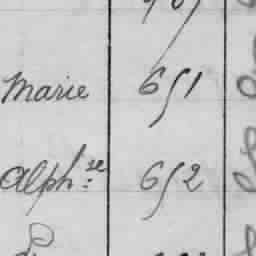 Marie 651
Alph.se 652